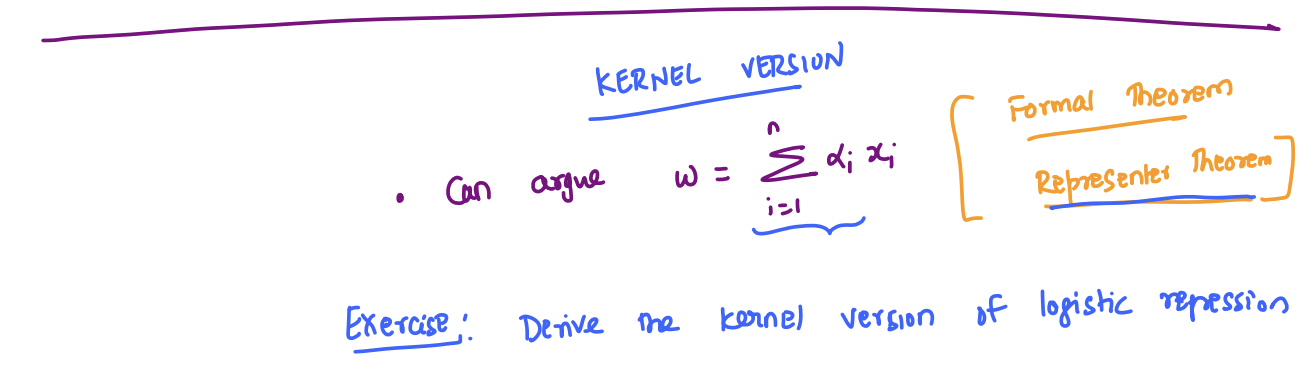 KERNEL VERSION
• Can argue w = \sum_{i=1}^{n} α_i x_i [ Formal Theorem
Representer Theorem ]
Exercise: Derive the kernel version of logistic repression